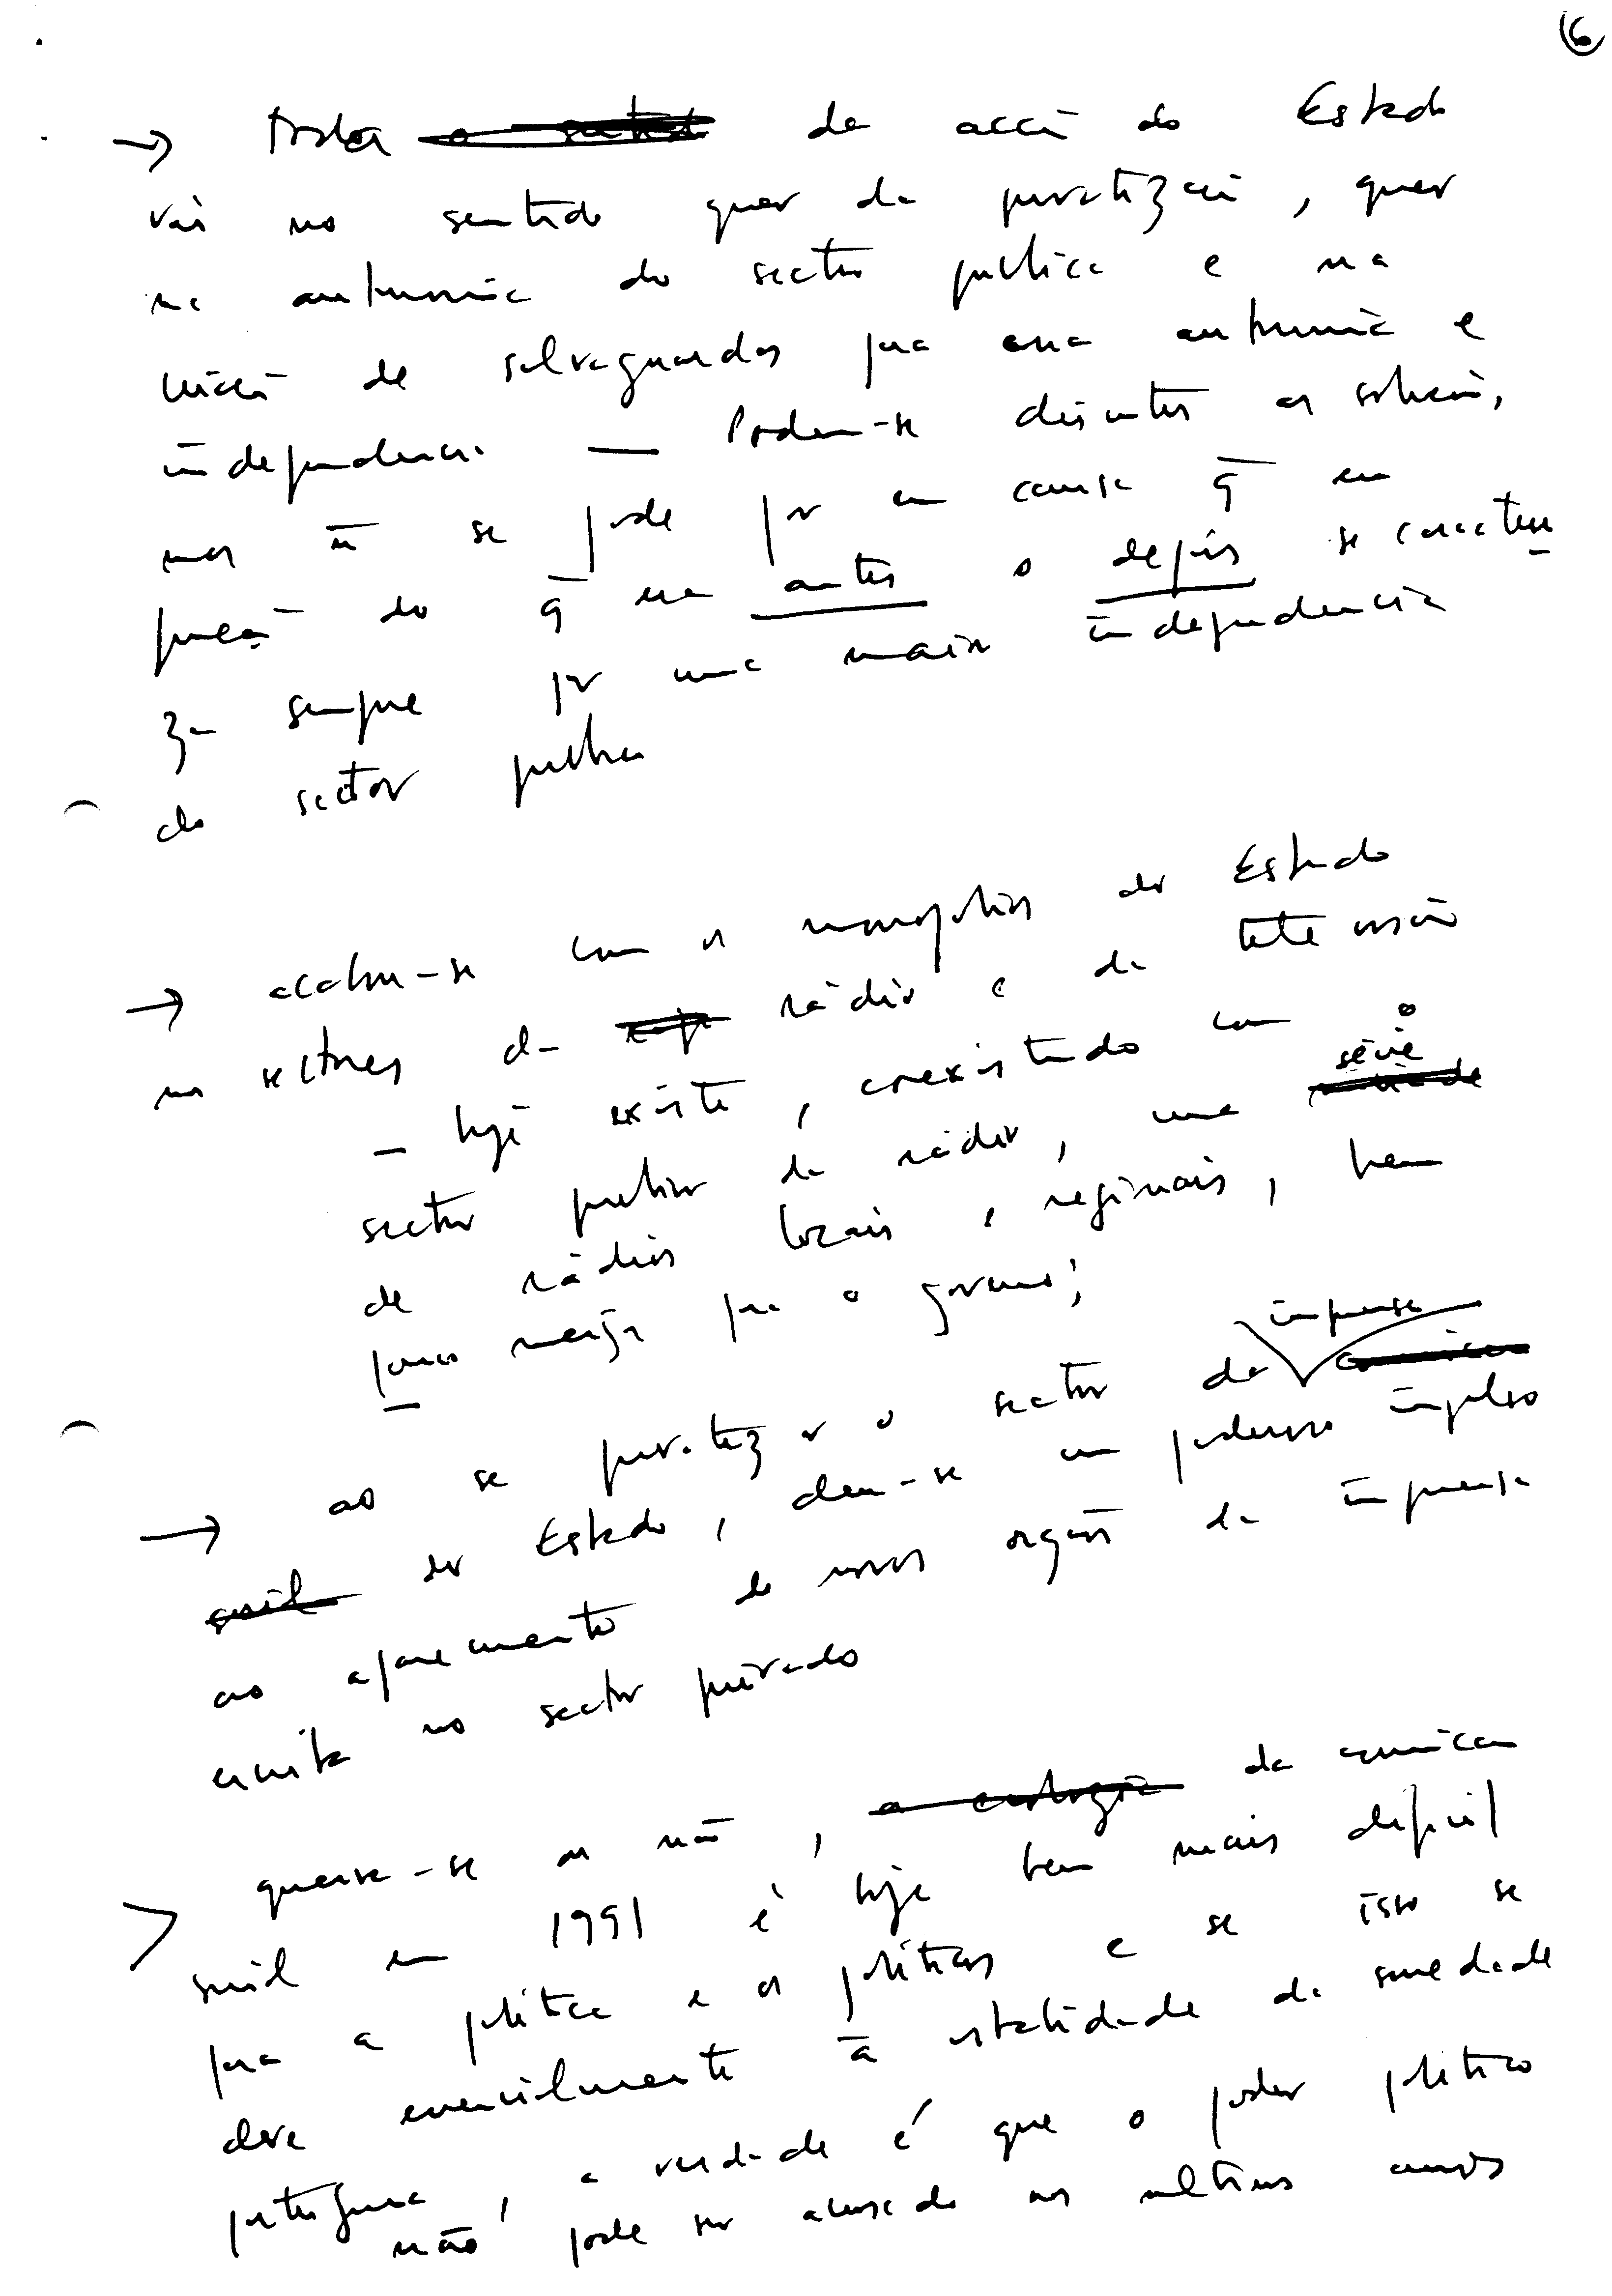 6
→ toda da acção do Estado
vai no sentido quer da privatização, quer
na autonomia do sector publico e na
criação de salvaguardas para essa autonomia e
independencia — Podem-se discutir as soluções,
mas ñ se pode pôr em causa q̄ em
função do q̄ era antes o depois se caracteri
za sempre por uma maior independência
do sector publico
→ acabou-se com os monopolios do Estado
nos sectores da rádio e da televisão
– hoje existe, coexistindo com o
sector publico da rádio, uma série
de rádios locais e regionais, bem
pouco meiga para o governo;
→ ao se privatizar o sector da imprensa
do Estado, deu-se um poderoso impulso
ao aparecimento de novos orgãos da imprensa
escrita no sector privado
> queira-se ou não, da comunicação
social em 1991 é hoje bem mais dificil
para a politica e os politicos e se isso se
deve essencialmente à vitalidade da sociedade
portuguesa, a verdade é que o poder politico
não pode ser acusado nos ultimos anos